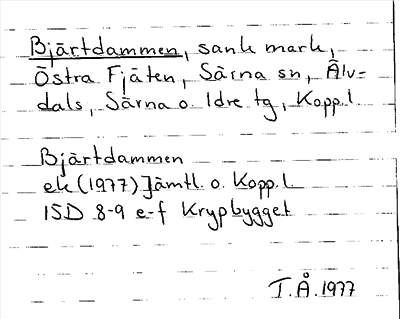 Bjärtdammen, sank mark,
Östra Fjäten, Särna sn, Älv=
dals, Särna o. Idre tg, Kopp. l.
Bjärtdammen
ek (1977) Jämtl. o. Kopp. l.
15D 8-9 e-f Krypbygget
T.Å. 1977